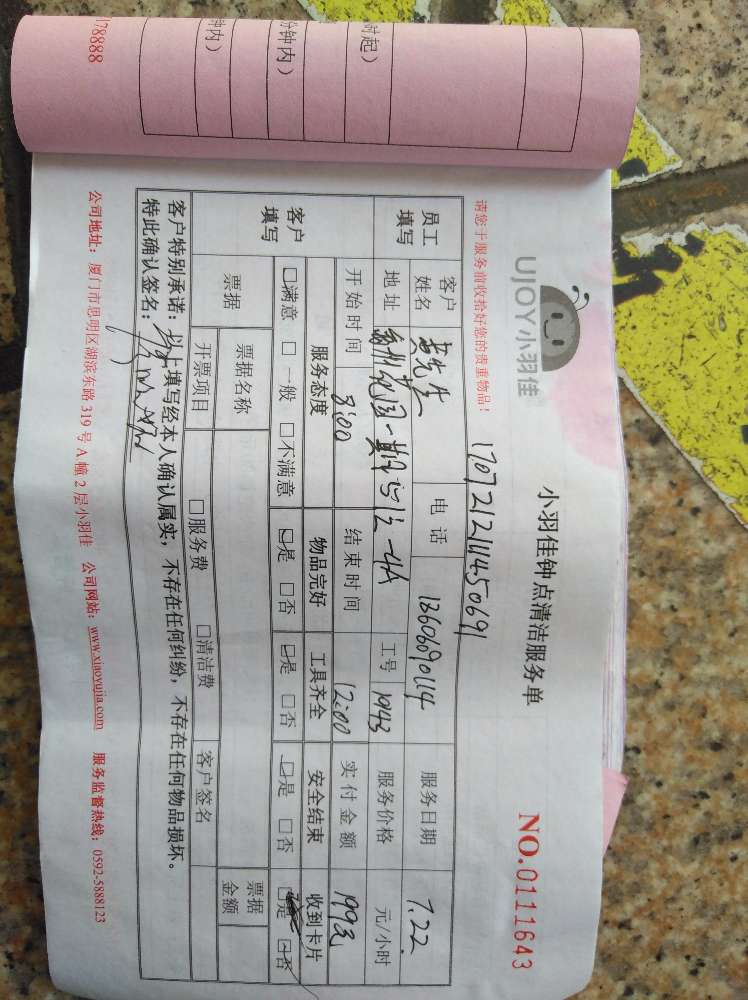 178888
钟内）
分钟内）
时起）
UJOY小羽佳
小羽佳钟点清洁服务单
NO.0111643
请您于服务前收拾好您的贵重物品！
170721211450691
员工填写 客户姓名 黄先生 电话 13606090114 服务日期 7.22
地址 花园一期 512-4A 工号 1943 服务价格 元/小时
开始时间 8:00 结束时间 12:00 实付金额 199元
客户填写 服务态度 物品完好 工具齐全 安全结束 收到卡片
□满意 □一般 □不满意 □是 □否 □是 □否 □是 □否 □是 □否
票据 票据名称 客户签名 票据金额
开票项目 □服务费 □清洁费
客户特别承诺：以上填写经本人确认属实，不存在任何纠纷，不存在任何物品损坏。
特此确认签名：
公司地址：厦门市思明区湖滨东路319号A幢2层小羽佳 公司网站：www.xiaoyujia.com 服务监督热线：0592-5888123